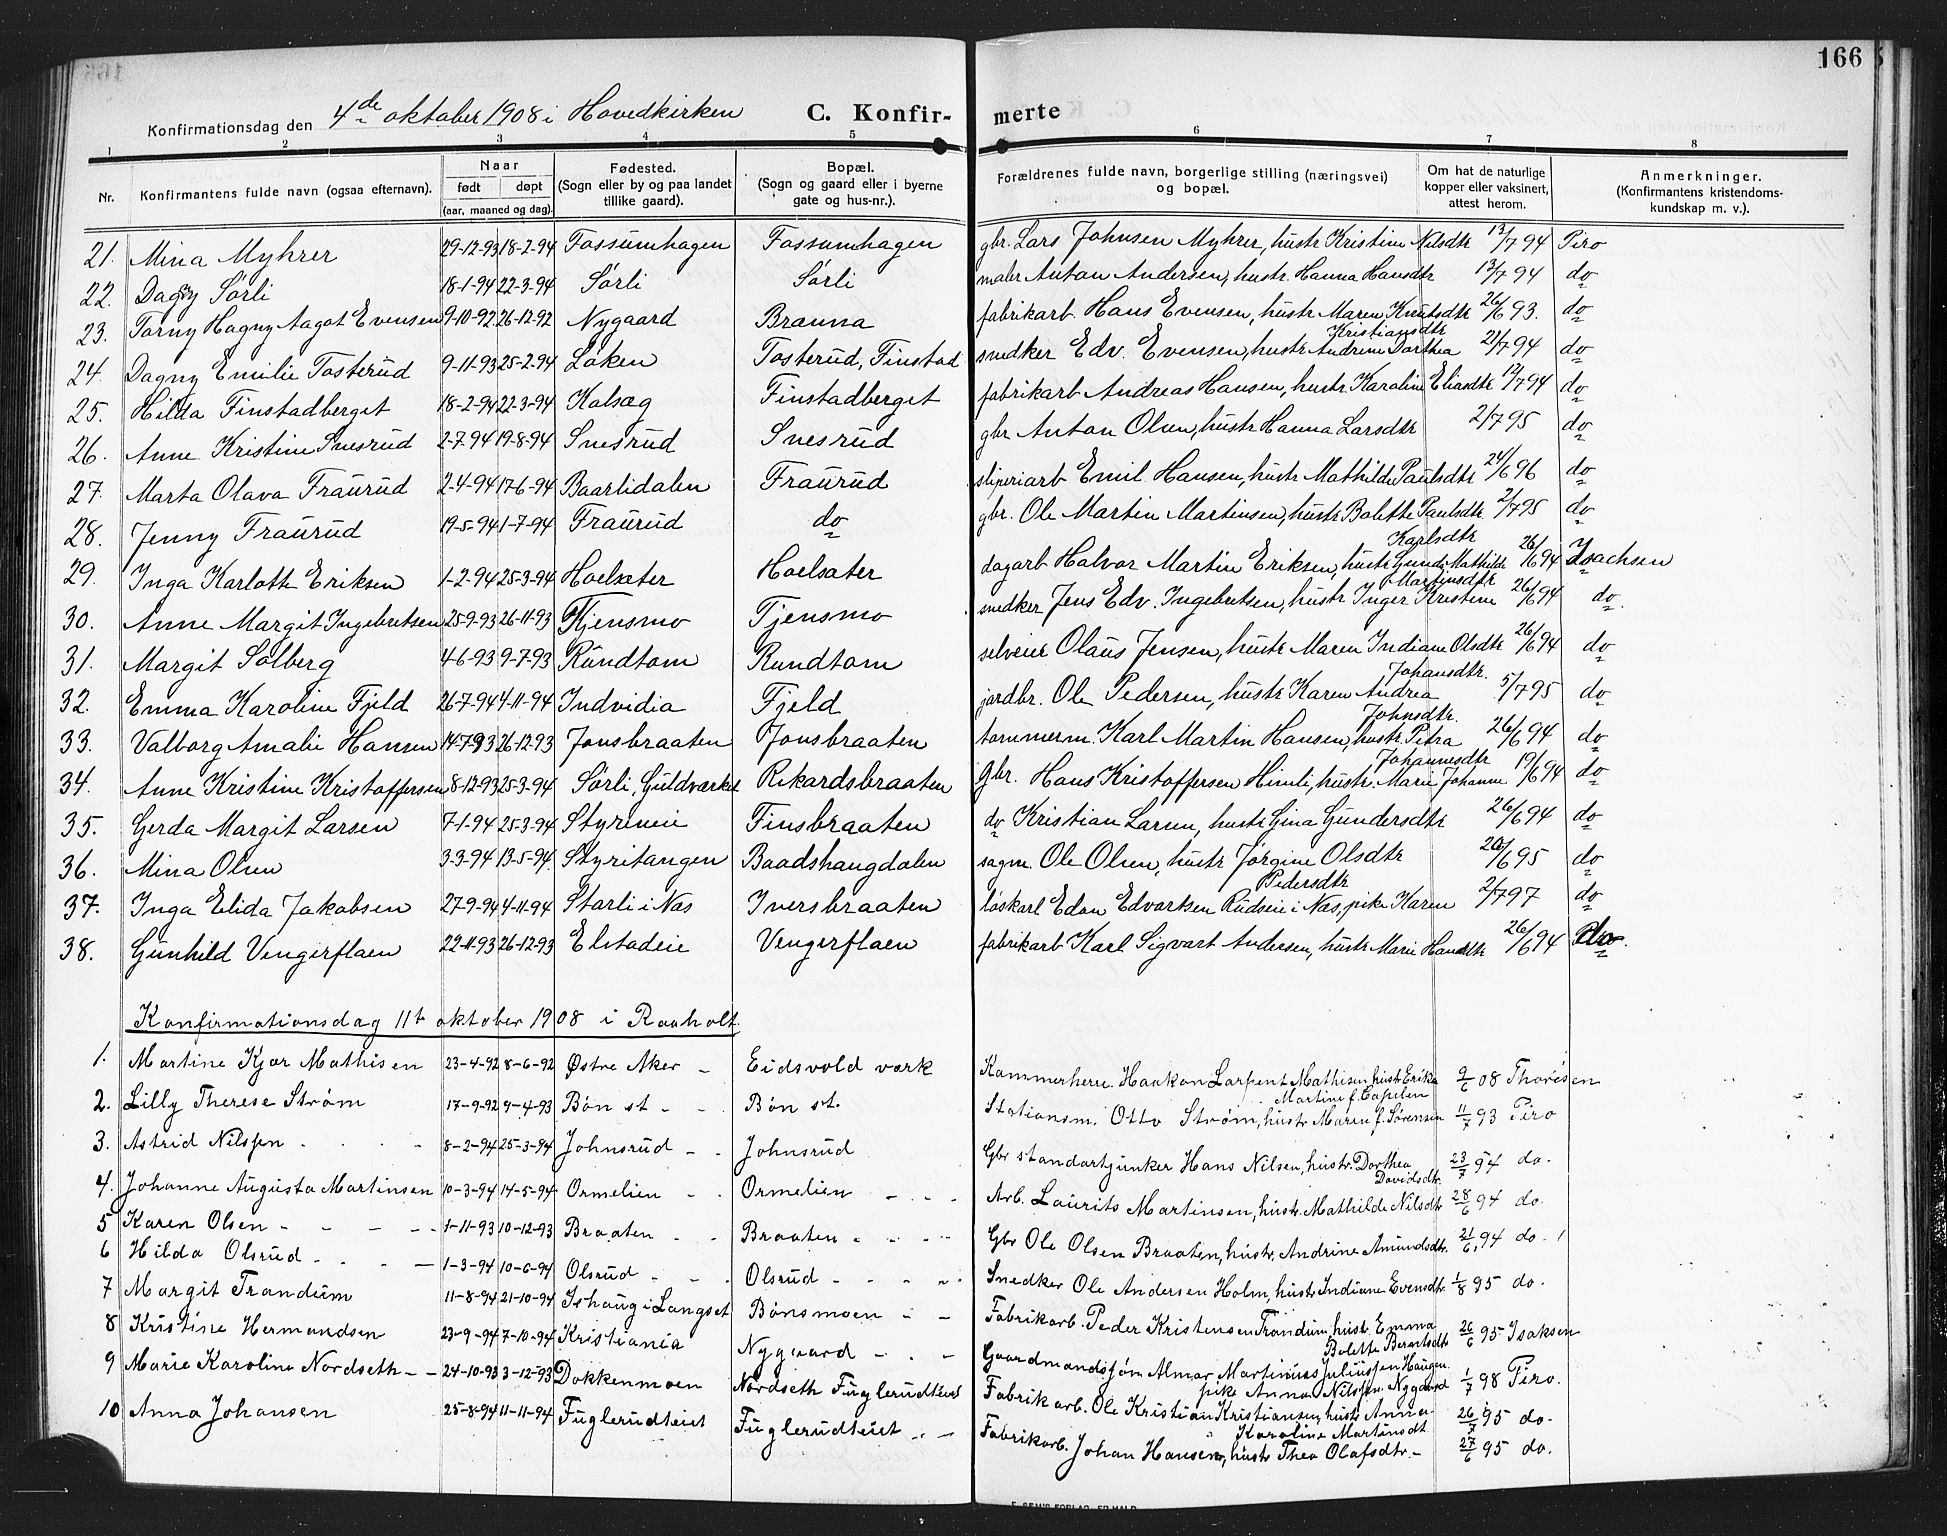 166
Konfirmationsdag den 4de oktober 1908 i Hovedkirken C. Konfirmerte
1 2 3 4 5 6 7 8
Nr. Konfirmantens fulde navn (ogsaa efternavn). Naar født døpt (aar, maaned og dag). Fødested. (Sogn eller by og paa landet tillike gaard). Bopæl. (Sogn og gaard eller i byerne gate og hus-nr.). Forældrenes fulde navn, borgerlige stilling (næringsvei) og bopæl. Om hat de naturlige kopper eller vaksinert, attest herom. Anmerkninger. (Konfirmantens kristendomskundskap m. v.).
21. Mina Myhrer 29-12-93 18-2-94 Fossumhagen Fossumhagen gbr. Lars Johnsen Myhrer, hustr Kristine Nilsdtr 13/7 94 Piro
22. Dagny Sørli 18-1-94 22-3-94 Sørli Sørli maler Anton Andersen, hustr. Hanna Hansdtr 13/7 94 do
23. Torny Hagny Aagot Evensen 9-10-92 26-12-92 Nygaard Brauna fabrikarb. Hans Evensen, hustr Maren Knutsdtr 26/6 93. do
24. Dagny Emilie Tosterud 9-11-93 25-2-94 Løken Tosterud, Finstad snedker Edv. Evensen, hustr Andrine Dorthea Kristiansdtr 21/7 94 do
25. Hilda Finstadberget 18-2-94 22-3-94 Kolsæg Finstadberget fabrikarb Andreas Hansen, hustr. Karoline Eliasdtr 12/7 94 do
26. Anne Kristine Snesrud 2-7-94 19-8-94 Snesrud Snesrud gbr Anton Olsen, hustr Hanna Larsdtr 2/7 95 do
27. Marta Olava Fraurud 2-4-94 17-6-94 Baarlidalen Fraurud sliperiarb Emil Hansen, hustr Mathilde Paulsdtr 24/6 96 do
28. Jenny Fraurud 19-5-94 1-7-94 Fraurud do gbr. Ole Martin Martinsen, hustr Bolette Paulsdtr 2/7 95 do
29. Inga Karlotte Eriksen 1-2-94 25-3-94 Hoelsæter Hoelsæter dagarb Halvor Martin Eriksen, hustr Gunda Mathilde Karlsdtr 26/6 94 Isachsen
30. Anne Margit Ingebretsen 25-9-93 26-11-93 Tjensmo Tjensmo snedker Jens Edv. Ingebretsen, hustr Inger Kristine Martinsdtr 26/6 94 do.
31. Margit Solberg 4-6-93 9-7-93 Rundtom Rundtom selveier Olaus Jensen, hustr Maren Indiane Olsdtr 26/6 94 do
32. Emma Karoline Fjeld 26-7-94 4-11-94 Indvidia Fjeld jordbr. Ole Pedersen, hustr Karen Andrea Johansdtr. 5/7 95 do
33. Valborg Amalie Hansen 14-7-93 26-12-93 Jonsbraaten Jonsbraaten tømmerm. Karl Martin Hansen, hustr. Petra Johnsdtr. 26/6 94 do
34. Anne Kristine Kristoffersen 8-12-93 25-3-94 Sørli, Guldværket Rikardsbraaten Gbr. Hans Kristoffersen Himli, hustr. Marie Johanne Johannesdtr 19/6 94 do
35. Gerda Margit Larsen 7-1-94 25-3-94 Styrieie Finsbraaten do Kristian Larsen, hustr Gina Gundersdtr 26/6 94 do
36. Mina Olsen 3-3-94 13-5-94. Styritangen Baadshaugdalen sagm. Ole Olsen, hustr Jørgine Olsdtr 20/6 95 do
37. Inga Elida Jakobsen 27-9-94 4-11-94 Starli i Næs Iversbraaten løskarl Edon Edvartsen Rudseie i Næs, pike Karen Pedersdtr 2/7 97 do
38. Gunhild Vengerflaen 22-11-93 26-12-93 Elstadeie Vengerflaen fabrikarb Karl Sigvart Andersen, hustr Marie Hansdtr 26/6 94 do.
Konfirmationsdag 11te oktober 1908 i Raaholt.
1. Martine Kjær Mathisen 23-4-92 8-6-92 Østre Aker - Eidsvold værk Kammerherre. Haakon Larpent Mathisen, hustr Erika Martine f. Capelen 9/6 08 Thoresen
2. Lilly Therese Strøm 17-9-92 9-4-93 Bøn st - - Bøn st. Stationsm. Otto Strøm, hustr Maren f. Sørensen 11/7 93 Piro
3. Astrid Nilssen 8-2-94 25-3-94 Johnsrud - - Johnsrud Gbr standartjunker Hans Nilsen, hustr. Dorthea Davidsdtr. 23/7 94 do.
4. Johanne Augusta Martinsen 10-3-94 14-5-94 Ormelien - - Ormelien - - - Arb. Laurits Martinsen, hustr. Mathilde Nilsdtr 28/6 94 do.
5 Karen Olsen - - - - 1-11-93 10-12-93 Braaten - - Braaten - - - - Gbr Ole Olsen Braaten, hustr. Andrine Amundsdtr. 21/6 94 do.
6 Hilda Olsrud - - - - 1-3-94 10-6-94 Olsrud - - - Olsrud - - - - Snedker Ole Andersen Holm, hustr Indiane Evensdtr. 1/8 95 do.
7 Margit Trandum 11-8-94 21-10-94 Ishaug i Langset Bønsmoen - - Fabrikarb. Peder Kristensen Trandum, hustr. Emma Bolette Berntsdtr 26/6 95 Isaksen
8 Kristine Hermandsen 23-9-94 7-10-94 Kristiania Nygaard - - - Gaardmandssøn Almar Martinius Juliussen Haugen pike Anna Nilssen Nygaard 1/7 98 Piro.
9 Marie Karoline Nordseth - - 24-10-93 3-12-93 Dokkenmoen Nordseth Fuglerudteiet Fabrikarb. Ole Kristian Kristiansen, hustr Anna Karoline Martinsdt 26/7 95 do.
10 Anna Johansen 25-8-94 11-11-94 Fuglerudteiet Fuglerudteiet - - Fabrikarb. Johan Hansen, hustr Thea Olafsdtr. - 27/6 95 do.